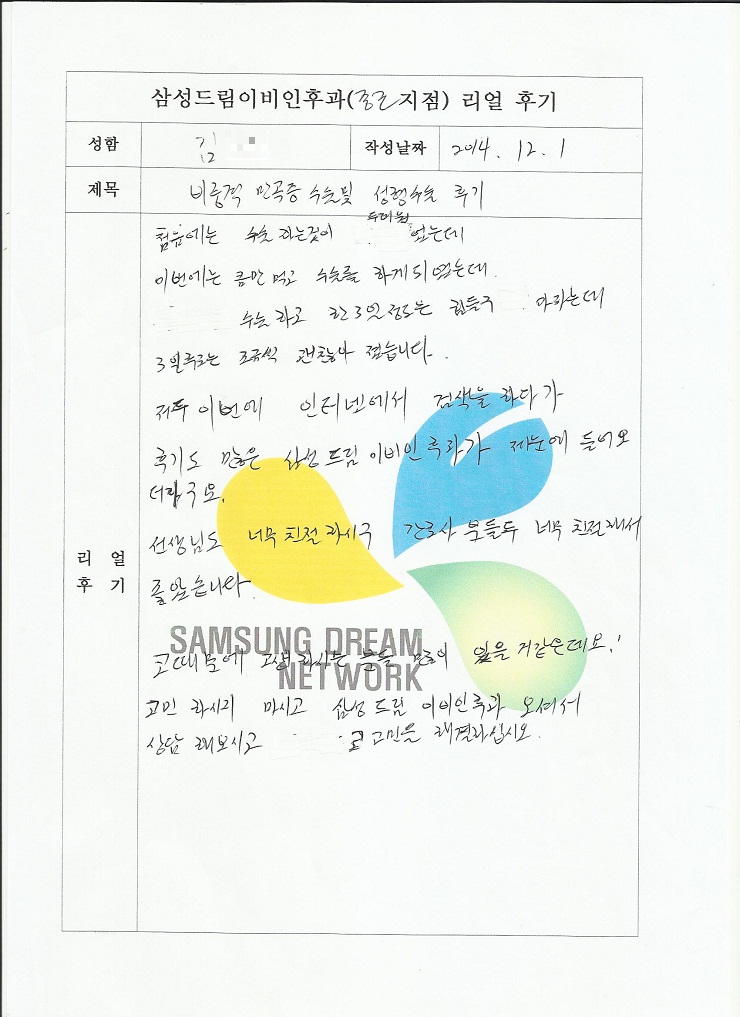 삼성드림이비인후과(종로지점) 리얼 후기
성함 김 작성날짜 2014. 12. 1
제목 비중격 만곡증 수술및 성형수술 후기
처음에는 수술 하는것이 두려웠 었는데
이번에는 큰맘 먹고 수술를 하게 되었는데.
수술 하고 한 3일정도는 힘들구 아파는데
3일후로는 조금씩 괜찮아 졌습니다.
저두 이번에 인터넷에서 검색을 하다가
후기도 많은 삼성드림이비인후과가 제눈에 들어오
더라구요.
선생님도 너무 친절하시구 간호사 분들두 너무 친절해서
리 얼
후 기
좋았습니다.
SAMSUNG DREAM
NETWORK
코때문에 고생하시는 분들 많이 있을 거같은데요!
고민 하시지 마시고 삼성드림 이비인후과 오셔서
상담 해보시고 코 고민을 해결하십시오.